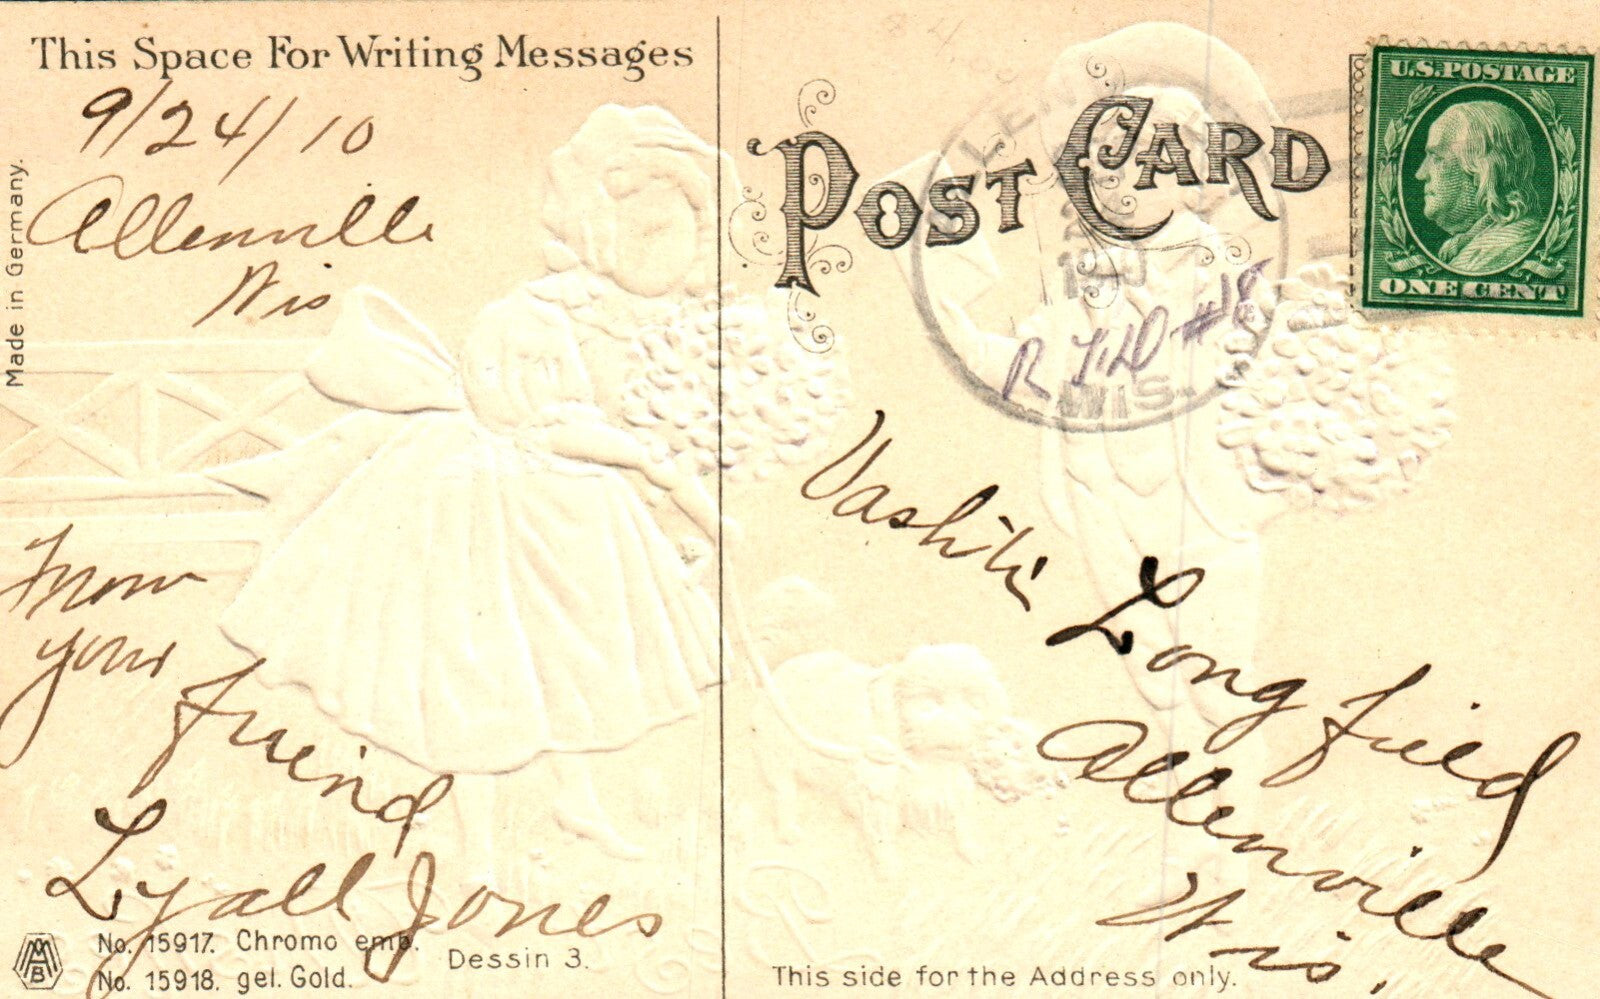 This Space For Writing Messages
9/24/10
Allenville
Wis
Made in Germany.
From
your
friend
Lyall Jones
MAB
No. 15917. Chromo emb.
No. 15918. gel. Gold.
Dessin 3.
POST CARD
U.S. POSTAGE
ONE CENT
1910
WIS.
R F.D #18
Vashti Longfield
Allenville
Wis.
This side for the Address only.